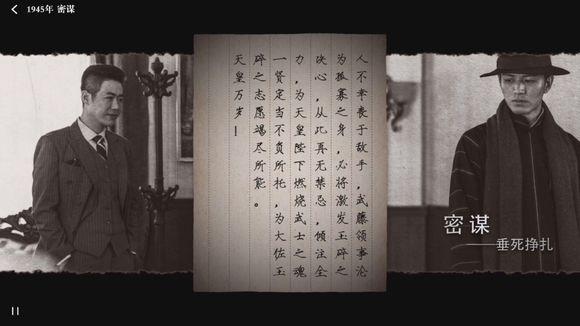 1945年 密谋
人不幸丧于敌手，武藤领事沦
为孤寡之身，必将激发玉碎之
决心，从此再无禁忌，倾注全
力，为天皇陛下燃烧武士之魂
一贤定当不负所托，为大佐玉
碎之志愿竭尽所能。
天皇万岁！
密谋
——垂死挣扎